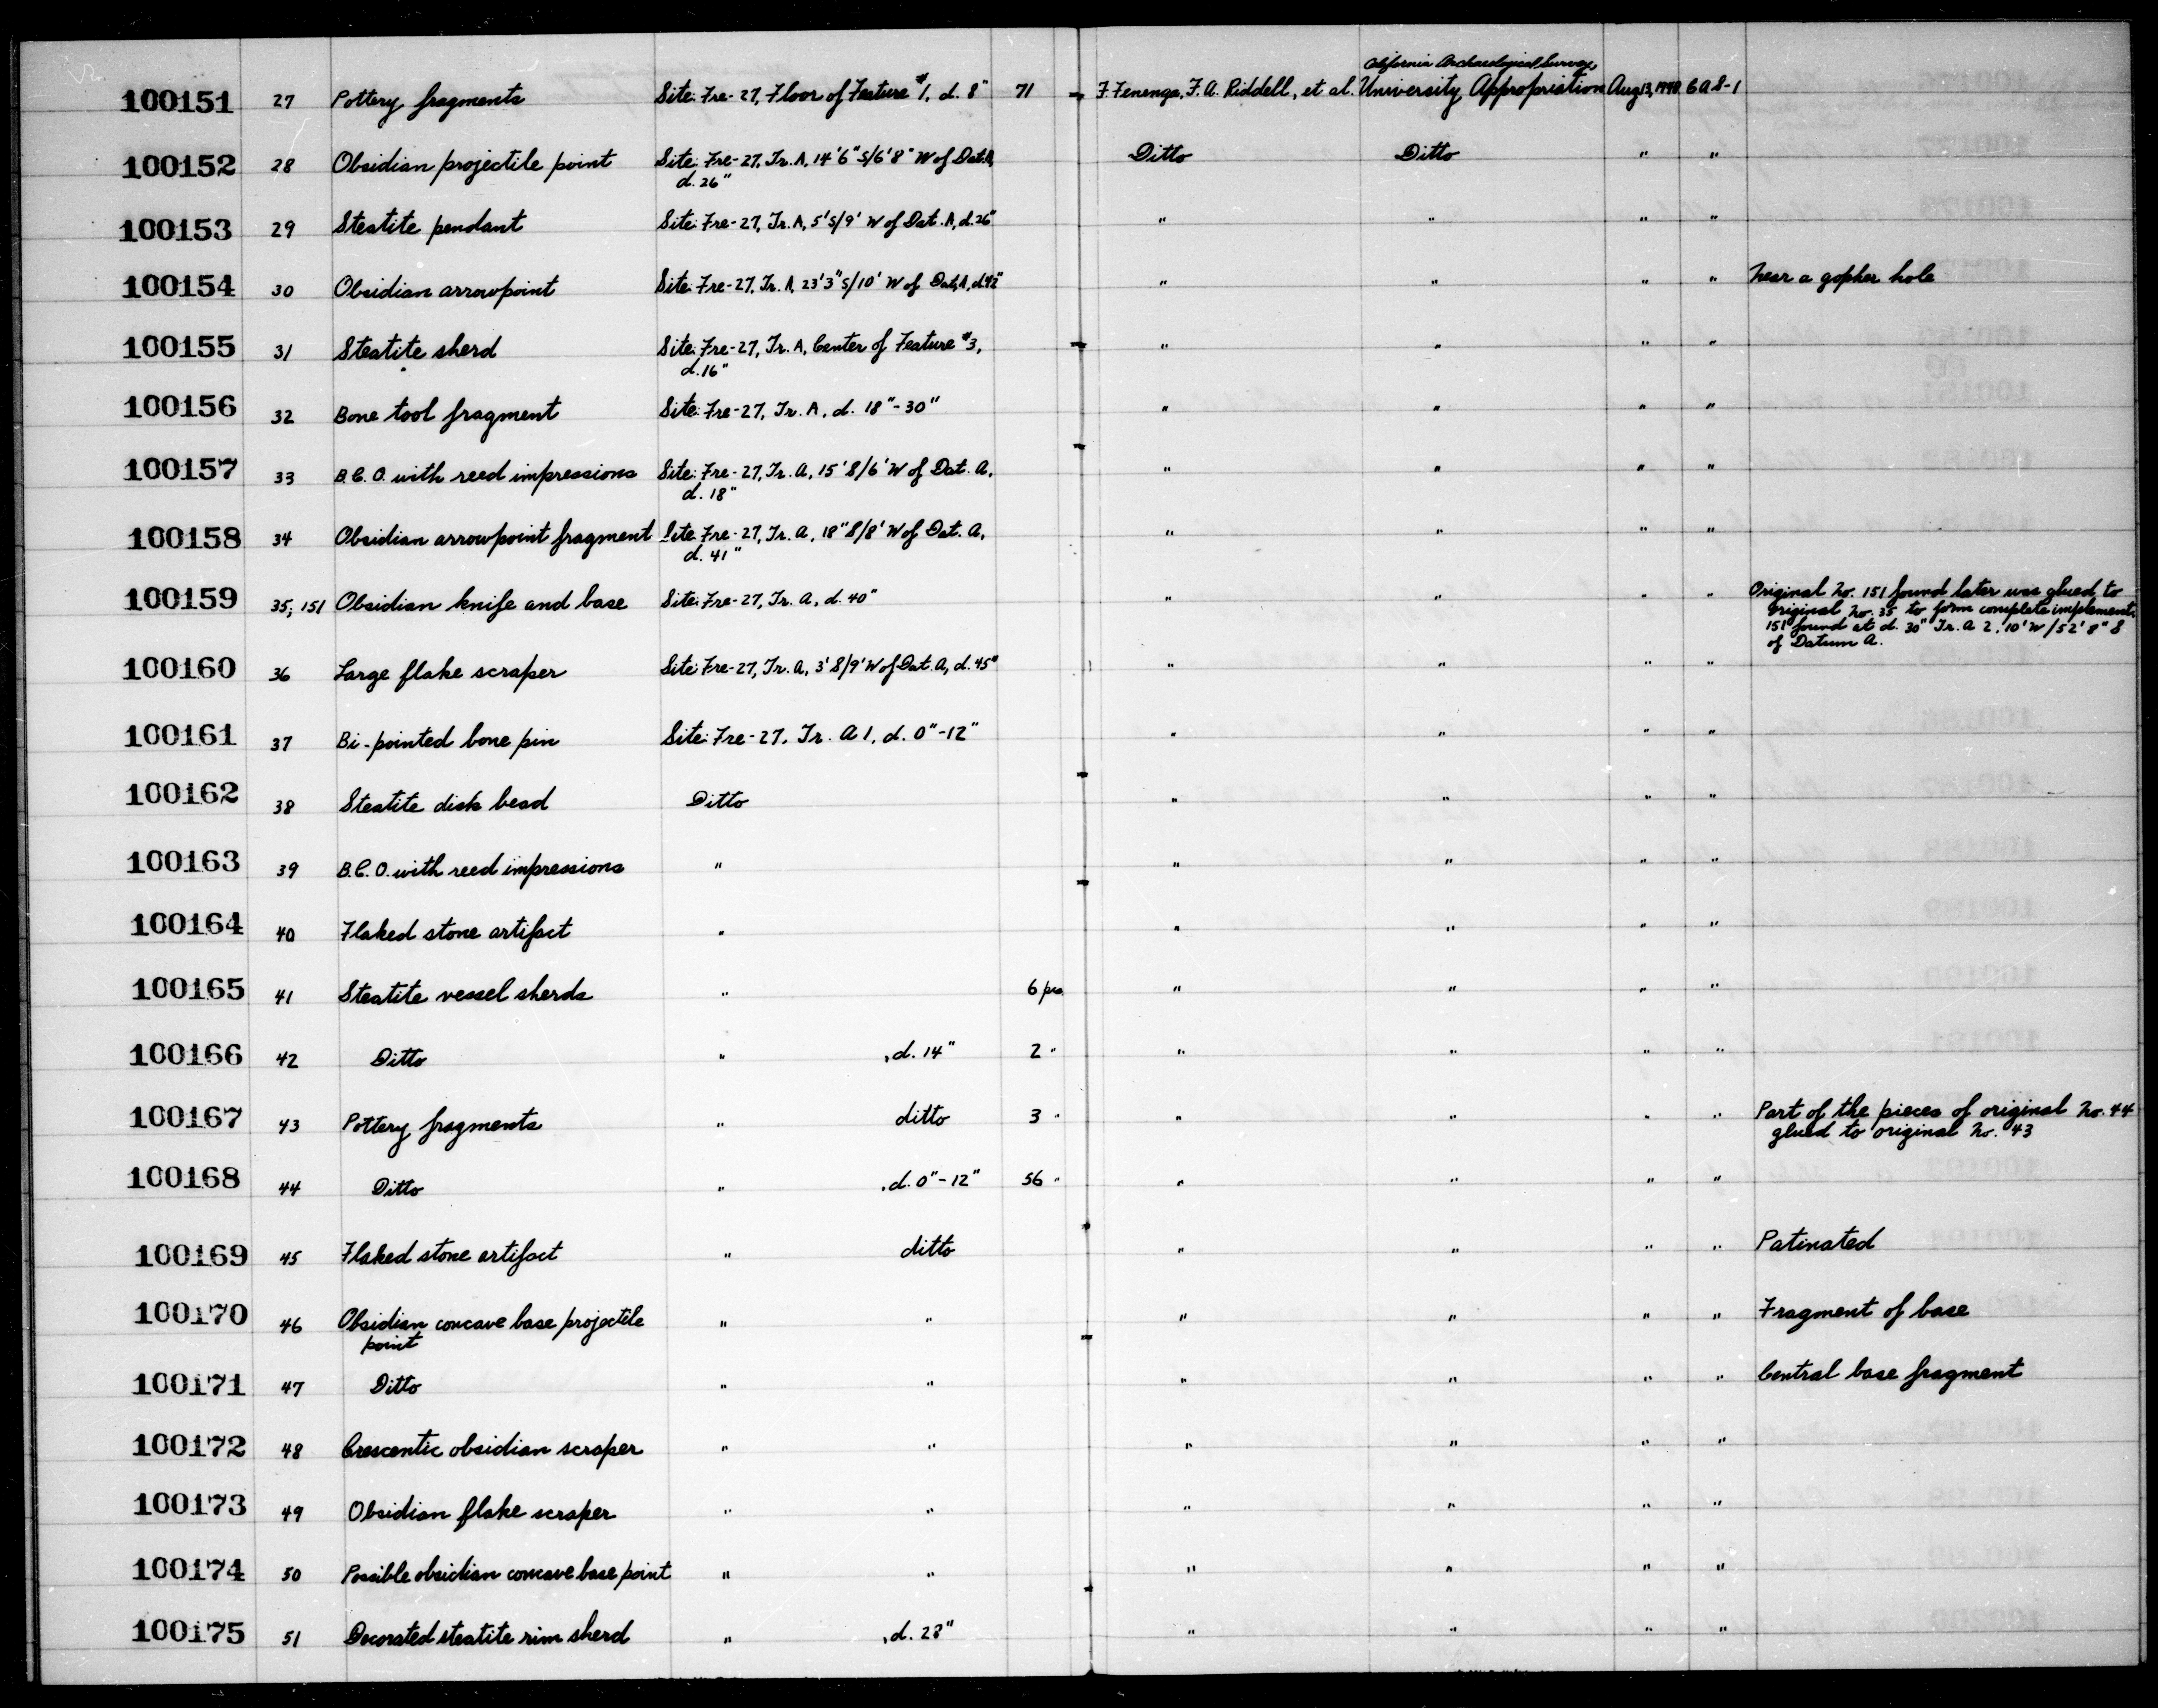 California Archaeological Survey,
100151 27 Pottery fragments Site: Fre-27, Floor of Feature #1, d. 8" 71 F. Fenenga, F. A. Riddell, et al. University Appropriation Aug 13, 1948 6 A 8-1
100152 28 Obsidian projectile point Site: Fre-27, Tr. A, 14'6"S/6'8" W of Dat. A, Ditto Ditto " "
d. 26"
100153 29 Steatite pendant Site: Fre-27, Tr. A, 5'S/9' W of Dat. A, d. 26" " " " "
100154 30 Obsidian arrowpoint Site: Fre-27, Tr. A, 23'3"S/10' W of Dat. A, d. 42" " " " " Near a gopher hole
100155 31 Steatite sherd Site: Fre-27, Tr. A, Center of Feature #3, " " " "
d. 16"
100156 32 Bone tool fragment Site: Fre-27, Tr. A, d. 18"-30" " " " "
100157 33 B.C.O. with reed impressions Site: Fre-27, Tr. A, 15'S/6' W of Dat. A, " " " "
d. 18"
100158 34 Obsidian arrowpoint fragment Site: Fre-27, Tr. A, 18"S/8' W of Dat. A, " " " "
d. 41"
100159 35; 151 Obsidian knife and base Site: Fre-27, Tr. A, d. 40" " " " " Original No. 151 found later was glued to
original No. 35 to form complete implement.
151 found at d. 30" Tr. A 2, 10'W/52'8" S
of Datum A.
100160 36 Large flake scraper Site: Fre-27, Tr. A, 3'S/9' W of Dat. A, d. 45" " " " "
100161 37 Bi-pointed bone pin Site: Fre-27, Tr. A 1, d. 0"-12" " " " "
100162 38 Steatite disk bead Ditto " " " "
100163 39 B.C.O. with reed impressions " " " " "
100164 40 Flaked stone artifact " " " " "
100165 41 Steatite vessel sherds " 6 pcs. " " " "
100166 42 Ditto " , d. 14" 2 " " " " "
100167 43 Pottery fragments " ditto 3 " " " " " Part of the pieces of original No. 44
glued to original No. 43
100168 44 Ditto " , d. 0"-12" 56 " " " " "
100169 45 Flaked stone artifact " ditto " " " " Patinated
100170 46 Obsidian concave base projectile " " " " " " Fragment of base
point
100171 47 Ditto " " " " " " Central base fragment
100172 48 Crescentic obsidian scraper " " " " " "
100173 49 Obsidian flake scraper " " " " " "
100174 50 Possible obsidian concave base point " " " " " "
100175 51 Decorated steatite rim sherd " , d. 28" " " " "